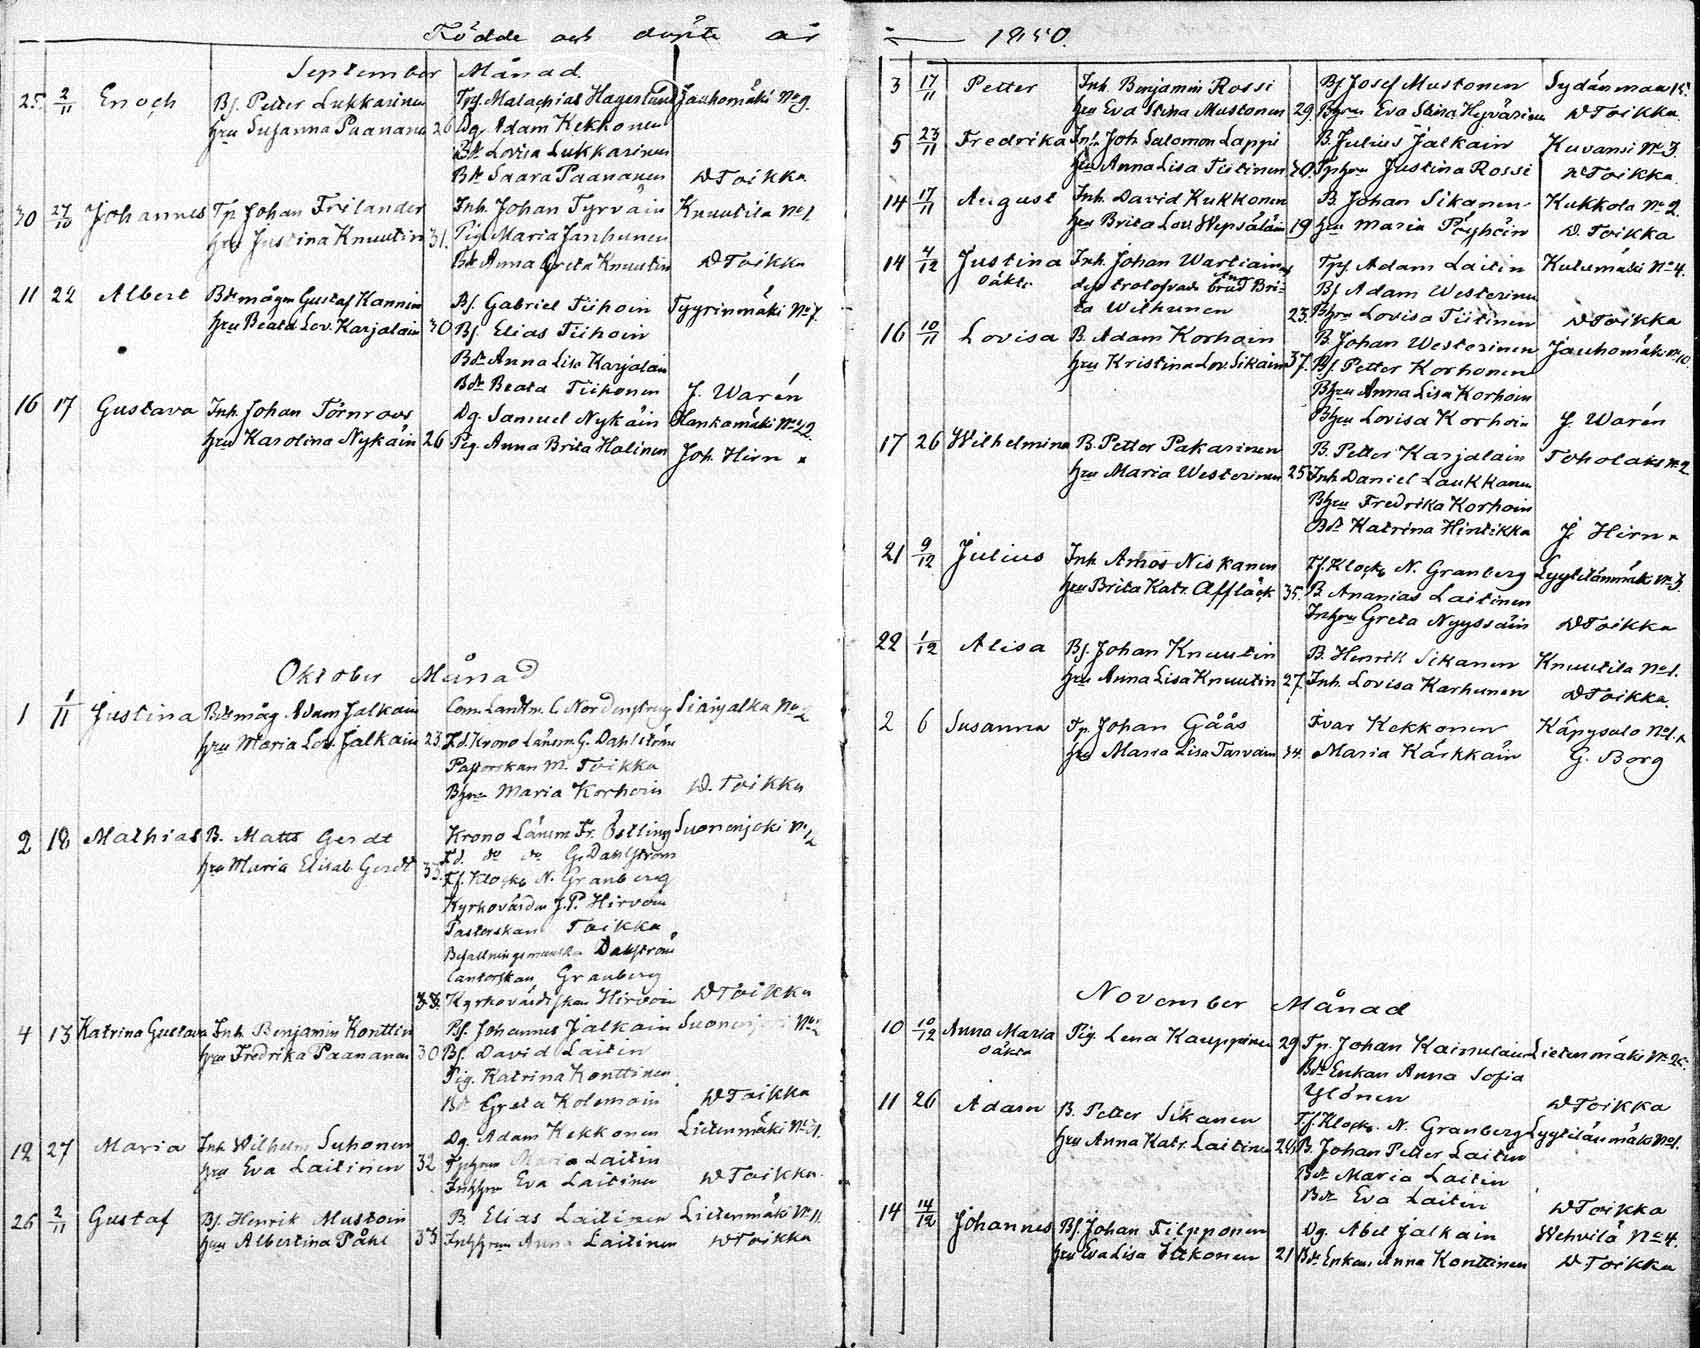 Födde och döpte år
September Månad
25. 2/11 Enoch Bf. Petter Lukkarinen Tpf. Malachias Hagerlund Jauhomäki No 9.
hru Susanna Paananen 26 Dg. Adam Kekkonen
Bdr Lovisa Lukkarinen
Bdr Saara Paananen W Toikka
30 27/10 Johannes Tp. Johan Frilander Inh. Johan Tyrväin Knuutila No 1
hru Justina Knuutin 31. Pig. Maria Janhunen
Bdr Anna Greta Knuutin W Toikka
11 22 Albert Bdrmågen Gustaf Kannin Bf. Gabriel Tiihoin Tyyrinmäki No 7.
hru Beata Lov. Karjalain 30 Bf. Elias Tiihoin
Bdr Anna Lisa Karjalain
Bdr Beata Tiihonen J. Warén
16 17 Gustava Inh. Johan Törnroos Dg. Samuel Nykäin Hankamäki No 22.
hru Karolina Nykäin 26 Pig. Anna Brita Halinen Joh. Hirn
Oktober Månad
1 1/11 Justina Bdrmåg Adam Jalkain Com. Landtm. C. Nordenstreng Siärjalka No 2
hru Maria Lov. Jalkain 23. T.d. Krono Länsm. G. Dahlström
Pastorskan M. Toikka
Bhru Maria Korhoin W. Toikka
2 18 Mathias B. Matts Gerdt Krono Länsm Fr. Östling Suonenjoki No 1/2
T.d. do do G. Dahlström
hru Maria Elisab. Gerdt 33. T.f. Klock. N. Granberg
Kyrkovärden J.P. Hirvoin
Pastorskan Toikka
Befallningsmanska Dahlström
Cantorskan Granberg
33. Kyrkovärdiskan Hirvoin W Toikka
4 13 Katrina Gustava Inh. Benjamin Konttin Bf. Johannes Jalkain Suonenjoki No 1/2
hru Fredrika Paananen 30 Bf. David Laitin
Pig. Katrina Konttinen
Bdr Greta Kolemain W Toikka
12 27 Maria Inh. Wilhelm Suhonen Dg. Adam Kekkonen Lietenmäki No 21.
hru Eva Laitinen 32 Tphru Maria Laitin
Inhhru Eva Laitinen W Toikka
26 2/11 Gustaf Bf. Henrik Mustoin B. Elias Laitinen Lietenmäki No 11.
hru Albertina Påhl 33 Inhhru Anna Laitinen W Toikka
1850.
3 17/11 Petter Inh. Benjamin Rossi Bf. Josef Mustonen Sydänmaa 15.
hru Eva Stina Mustonen 29. Bhru Eva Stina Hyvärinen W Toikka
5 23/11 Fredrika Inh. Joh. Salomon Lappi B. Julius Jalkain Kuvansi No 3.
hru Anna Lisa Tiitinen 30. Tphru Justina Rossi W Toikka
14 17/11 August Inh. David Kukkonen B. Johan Sikanen Kukkola No 2.
hru Brita Lov. Wepsäläin 19 hru Maria Pöyhöin W. Toikka
14 4/12 Justina Inh. Johan Wartiain Tpf. Adam Laitin Kutumäki No 4.
oäkta dess trolofvade brud Bri- Bf. Adam Westerinen
ta Wilhunen 23. Bhru Lovisa Tiitinen W Toikka
16 10/11 Lovisa B. Adam Korhoin B. Johan Westerinen Jauhomäki No 10.
hru Kristina Lov. Sikain 37. Bf. Petter Korhonen
Bhru Anna Lisa Korhoin
Bhru Lovisa Korhoin J. Warén
17 26 Wilhelmina B. Petter Pakarinen B. Petter Karjalain Toholaks No 2
hru Maria Westerinen 25 Inh. Daniel Laukkanen
Bhru Fredrika Korhoin
Bdr Katrina Hintikka J. Hirn
21 9/12 Julius Inh. Amos Niskanen T.f. Klock. N. Granberg Lyytilänmäki No 3
hru Brita Katr. Affläck 35. B. Ananias Laitinen
Inhhru Greta Nyyssöin W Toikka
22 1/12 Alisa Bf. Johan Knuutin B. Henrik Sikanen Knuutila No 1.
hru Anna Lisa Knuutin 27. Inh. Lovisa Karhunen W Toikka.
2 6 Susanna Tp. Johan Gåås Ivar Kekkonen Käpysalo No 1.
hru Maria Lisa Tarvain 34. Maria Kärkkäin G. Borg
November Månad
10 10/12 Anna Maria Pig. Lena Kauppinen 29 Tp. Johan Kainulain Lietenmäki No 25.
oäkta Bdr Enkan Anna Sofia
Ylönen W Toikka
11 26 Adam B. Petter Sikanen T.f. Klock. N. Granberg Lyytilänmäki No 1.
hru Anna Katr. Laitinen 24 B. Johan Petter Laitin
Bdr Maria Laitin
Bdr Eva Laitin W Toikka
14 14/12 Johannes Bf. Johan Filpponen Dg. Abel Jalkain Wehvilä No 4.
hru Eva Lisa Itkonen 21 Bdr Enkan Anna Konttinen W Toikka